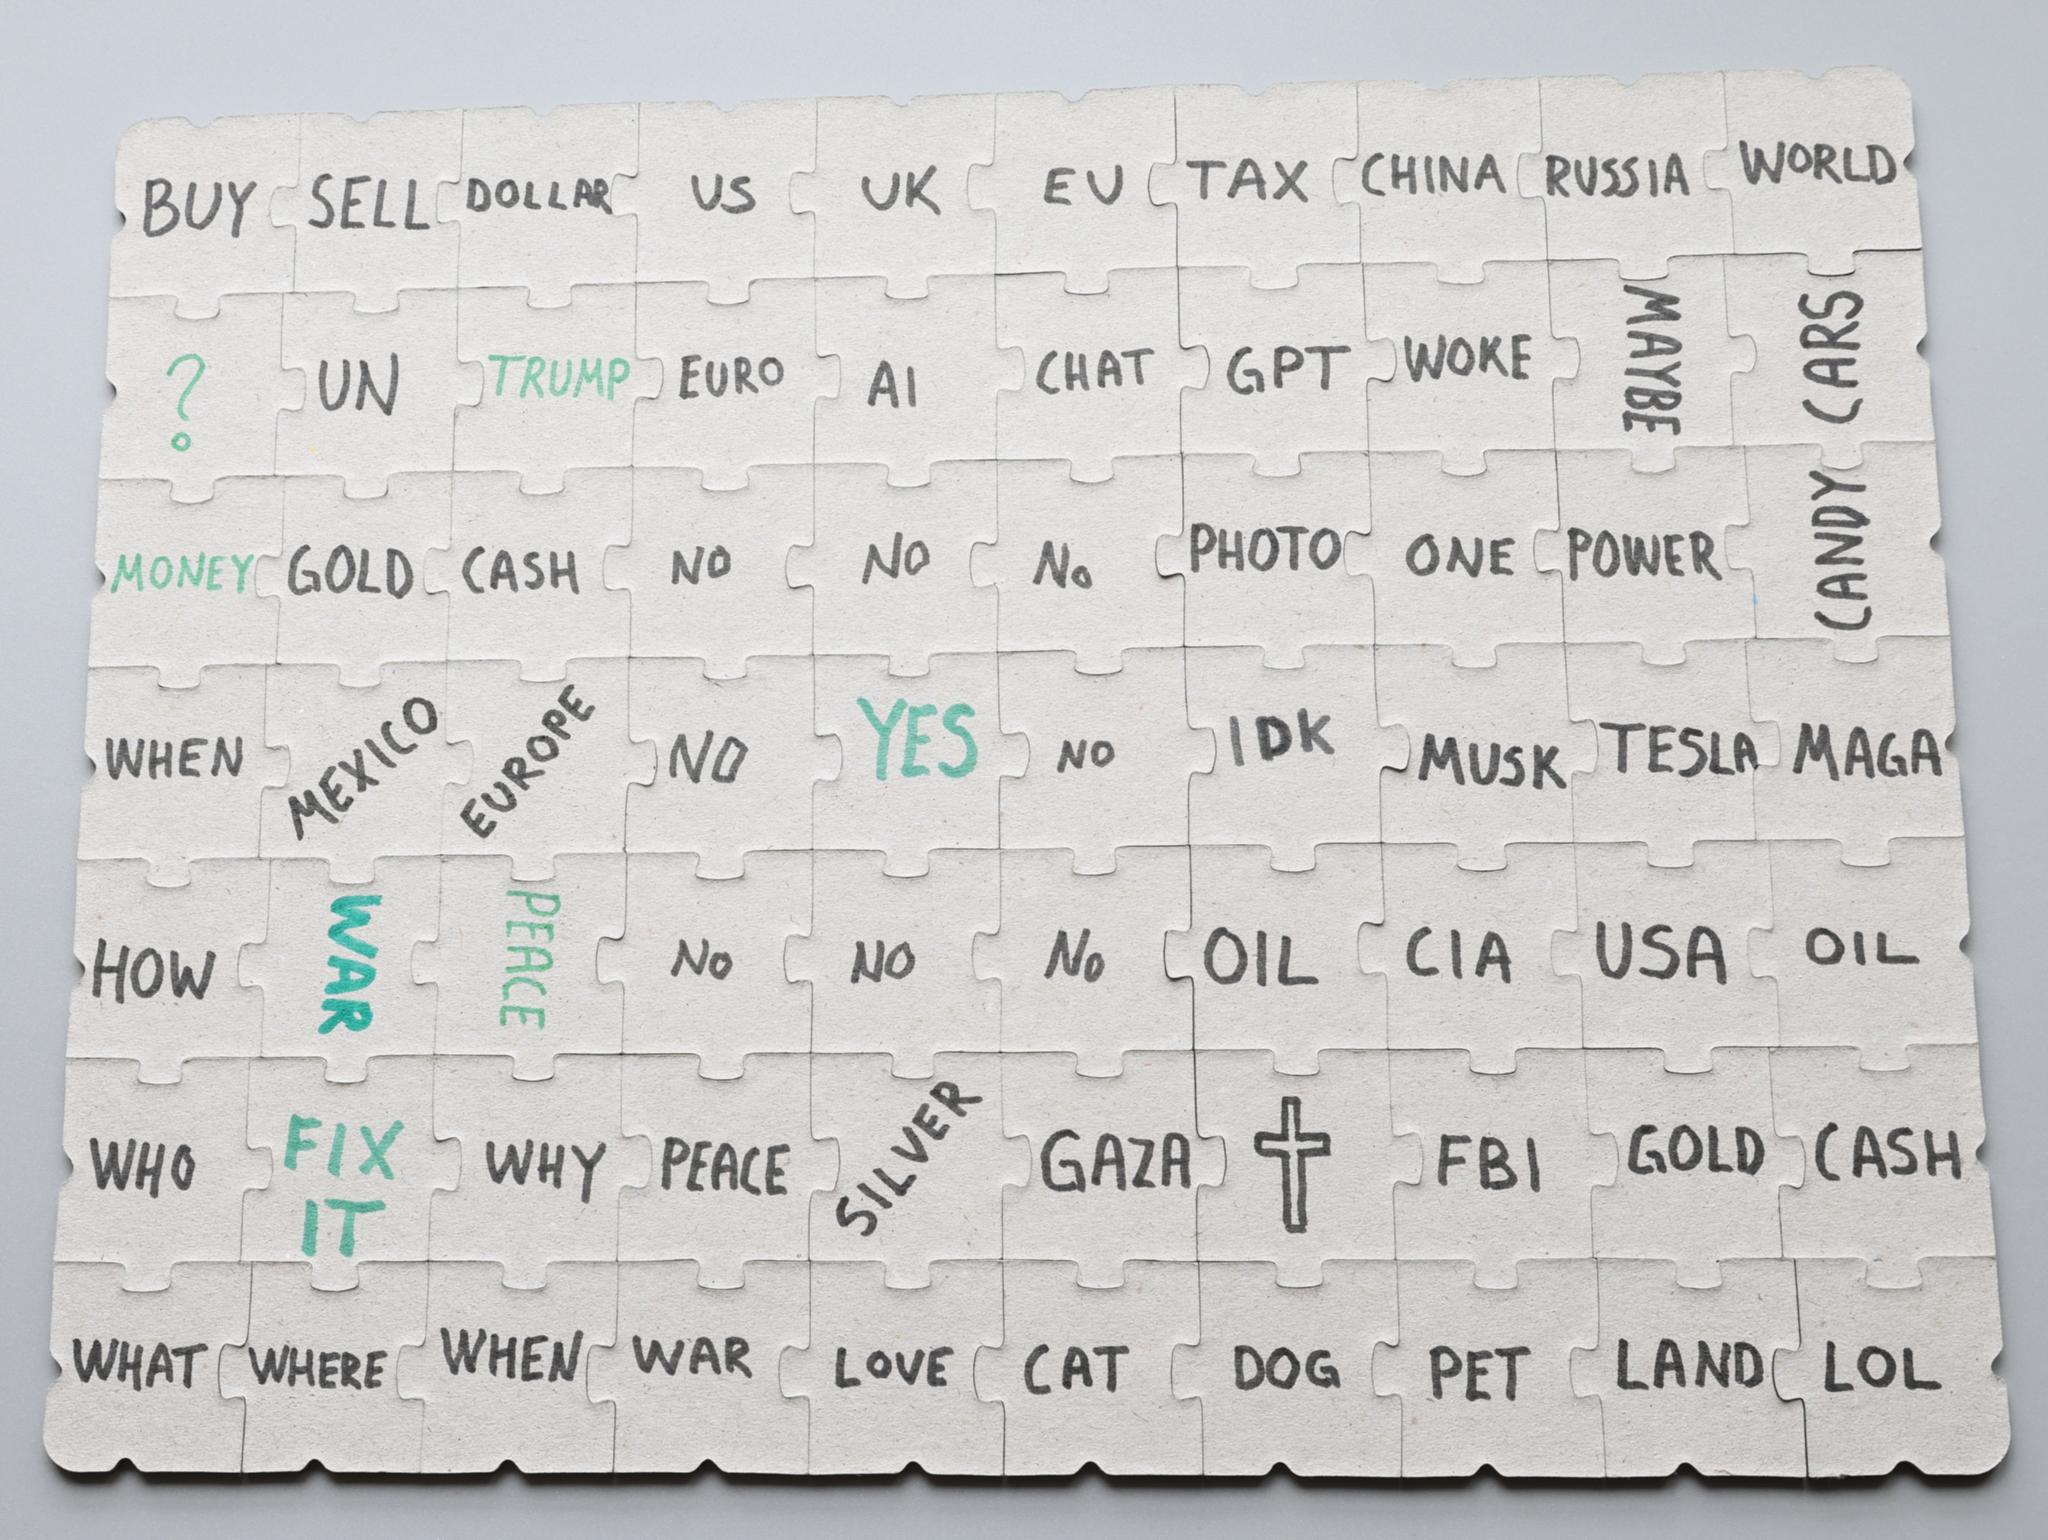 BUY SELL DOLLAR US UK EU TAX CHINA RUSSIA WORLD
? UN TRUMP EURO AI CHAT GPT WOKE MAYBE CARS
MONEY GOLD CASH NO NO No PHOTO ONE POWER CANDY
WHEN MEXICO EUROPE NO YES NO IDK MUSK TESLA MAGA
HOW WAR PEACE No NO No OIL CIA USA OIL
WHO FIX IT WHY PEACE SILVER GAZA FBI GOLD CASH
WHAT WHERE WHEN WAR LOVE CAT DOG PET LAND LOL